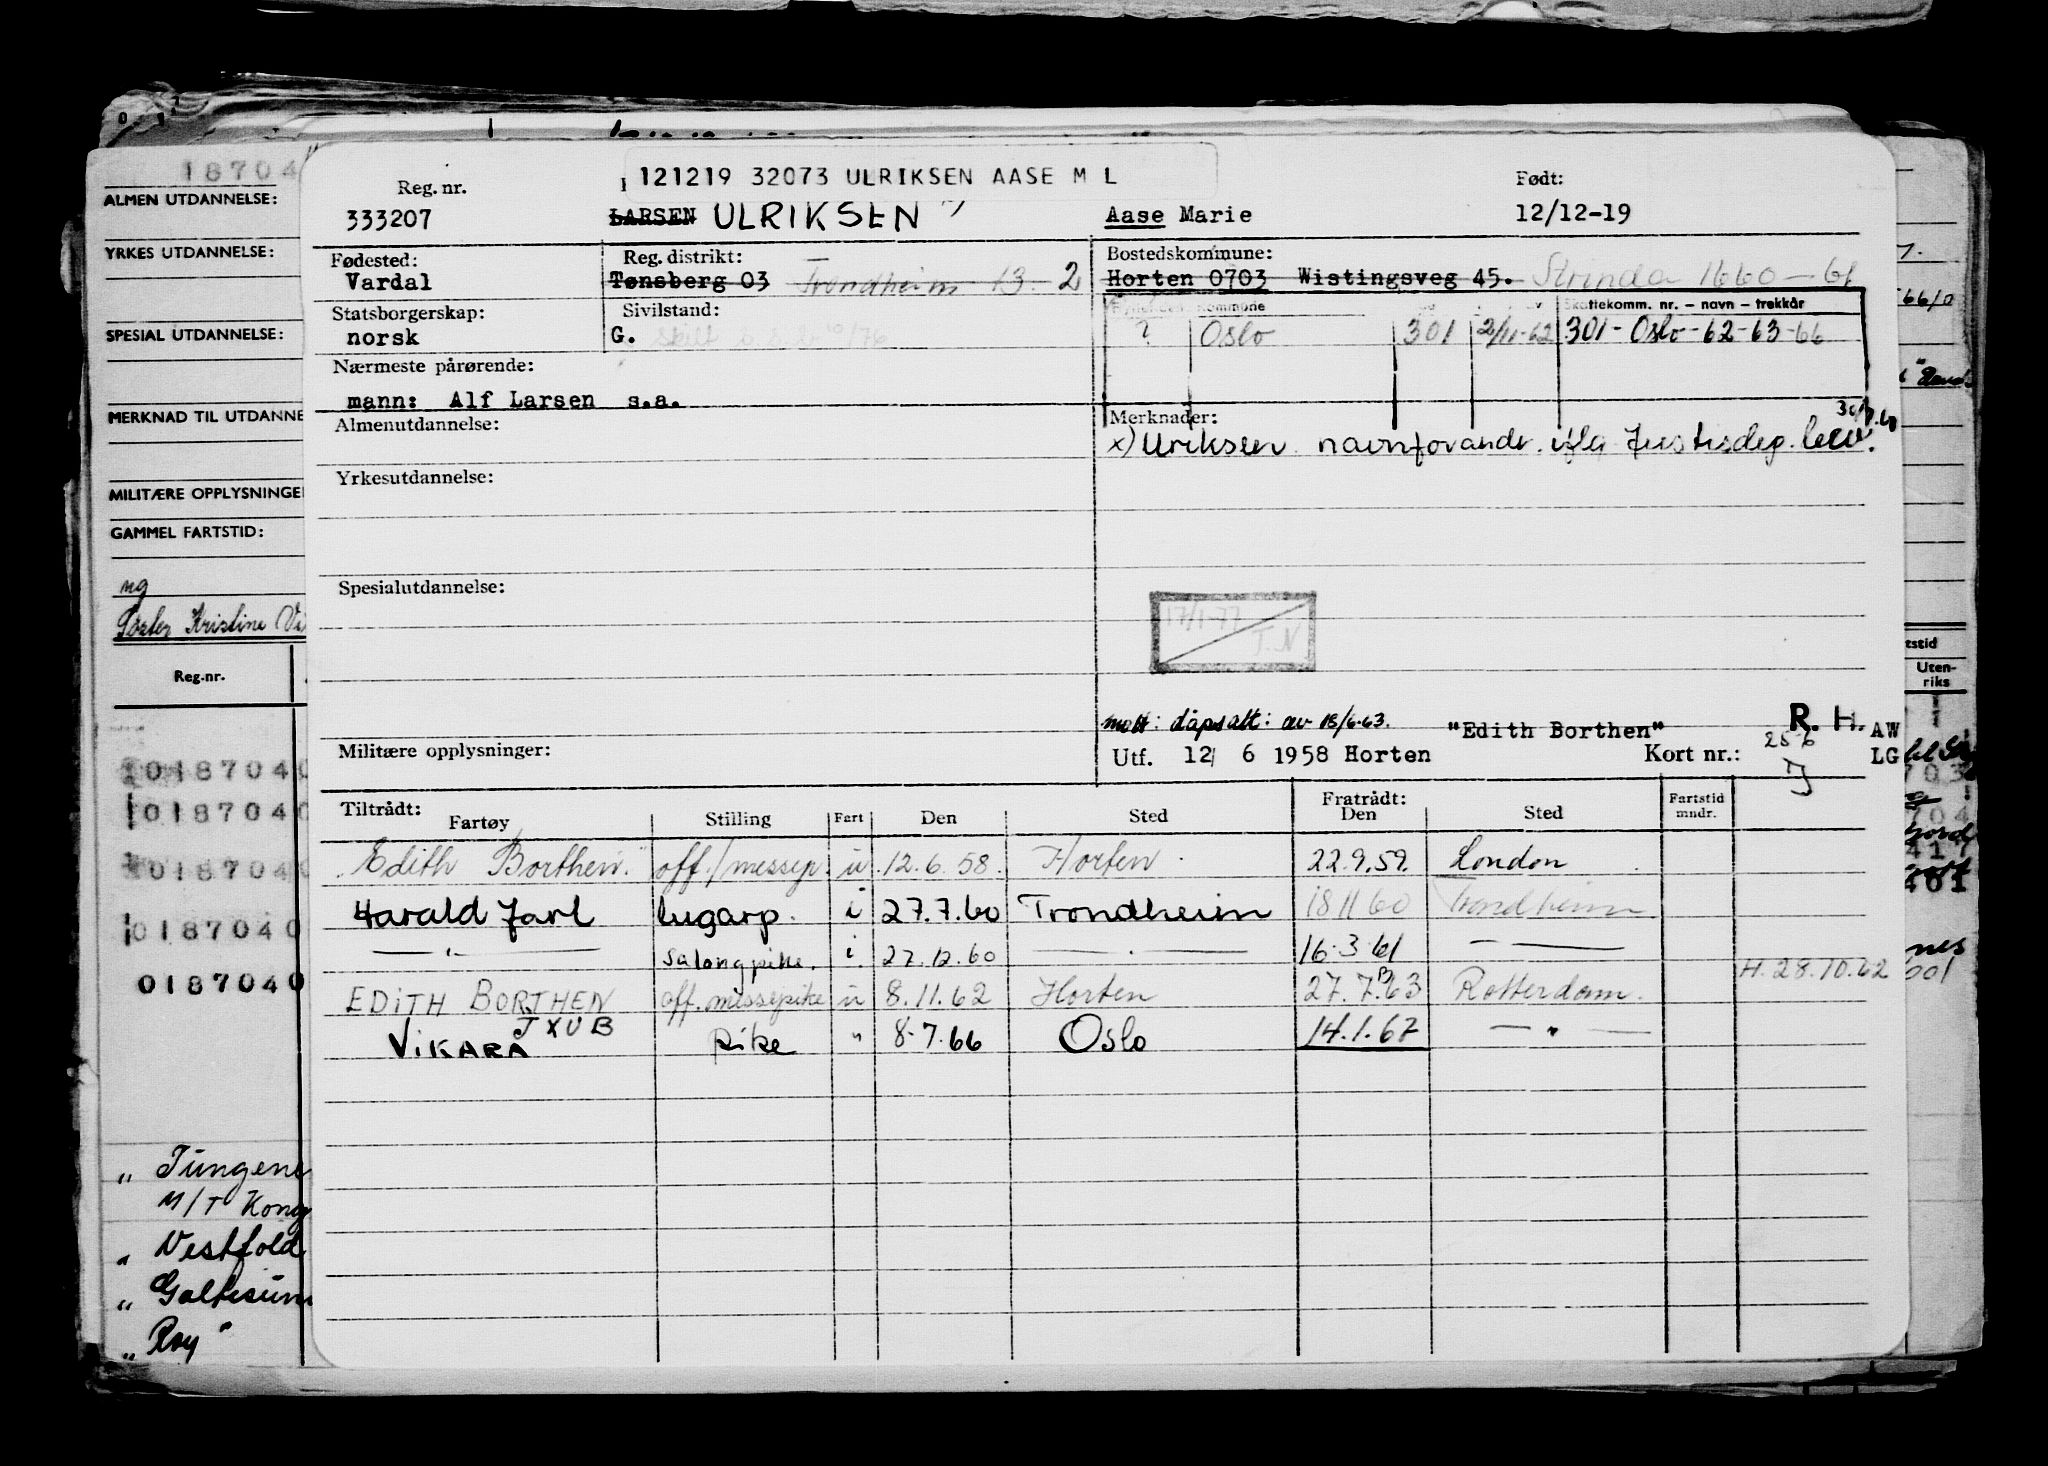 18704
ALMEN UTDANNELSE:
YRKES UTDANNELSE:
SPESIAL UTDANNELSE:
MERKNAD TIL UTDANNE
MILITÆRE OPPLYSNINGE
GAMMEL FARTSTID:
ng
Søster Kristine
Reg.nr.
0187040
0187040
0187040
0187040
0187040
„ Tungene
M/T Kong
„ Vestfold
„ Galtesun
„ Roy"
121219 32073 ULRIKSEN AASE M L
Reg. nr. Født:
333207 LARSEN ULRIKSEN x) Aase Marie 12/12-19
Fødested: Reg. distrikt: Bostedskommune:
Vardal Tønsberg 03 Trondheim 13. 2 Horten 0703 Wistingsveg 45. Strinda 1660-61
Statsborgerskap: Sivilstand: kommune Skattekomm. nr. – navn – trekkår
norsk G. ? Oslo 301 2/11-62 301-Oslo-62-63-66
Nærmeste pårørende:
mann: Alf Larsen s.a.
Almenutdannelse: Merknader:
x) Ulriksen navnforandr. iflg Justisdep. bew.
Yrkesutdannelse:
Spesialutdannelse:
17/1-77
T.N
mott: dåpsatt: av 18/6-63. "Edith Borthen" R. H. AW
Militære opplysninger: Utf. 12/ 6 1958 Horten Kort nr.: LG
25-6
Tiltrådt: Fratrådt:
Fartøy Stilling Fart Den Sted Den Sted Fartstid mndr.
"Edith Borthen" off./messep. u 12.6.58. Horten 22.9.59. London
Harald Jarl lugarp. i 27.7.60 Trondheim 18 11 60 Trondheim
— " — Salongpike. i. 27.12.60 — " — 16.3.61 — " —
EDITH BORTHEN off. messepike u 8.11.62 Horten 27.7.63 Rotterdam. H. 28.10.62
VIKARA JXUB Pike " 8.7.66 Oslo 14.1.67 — " —
tstid
Uten-
riks